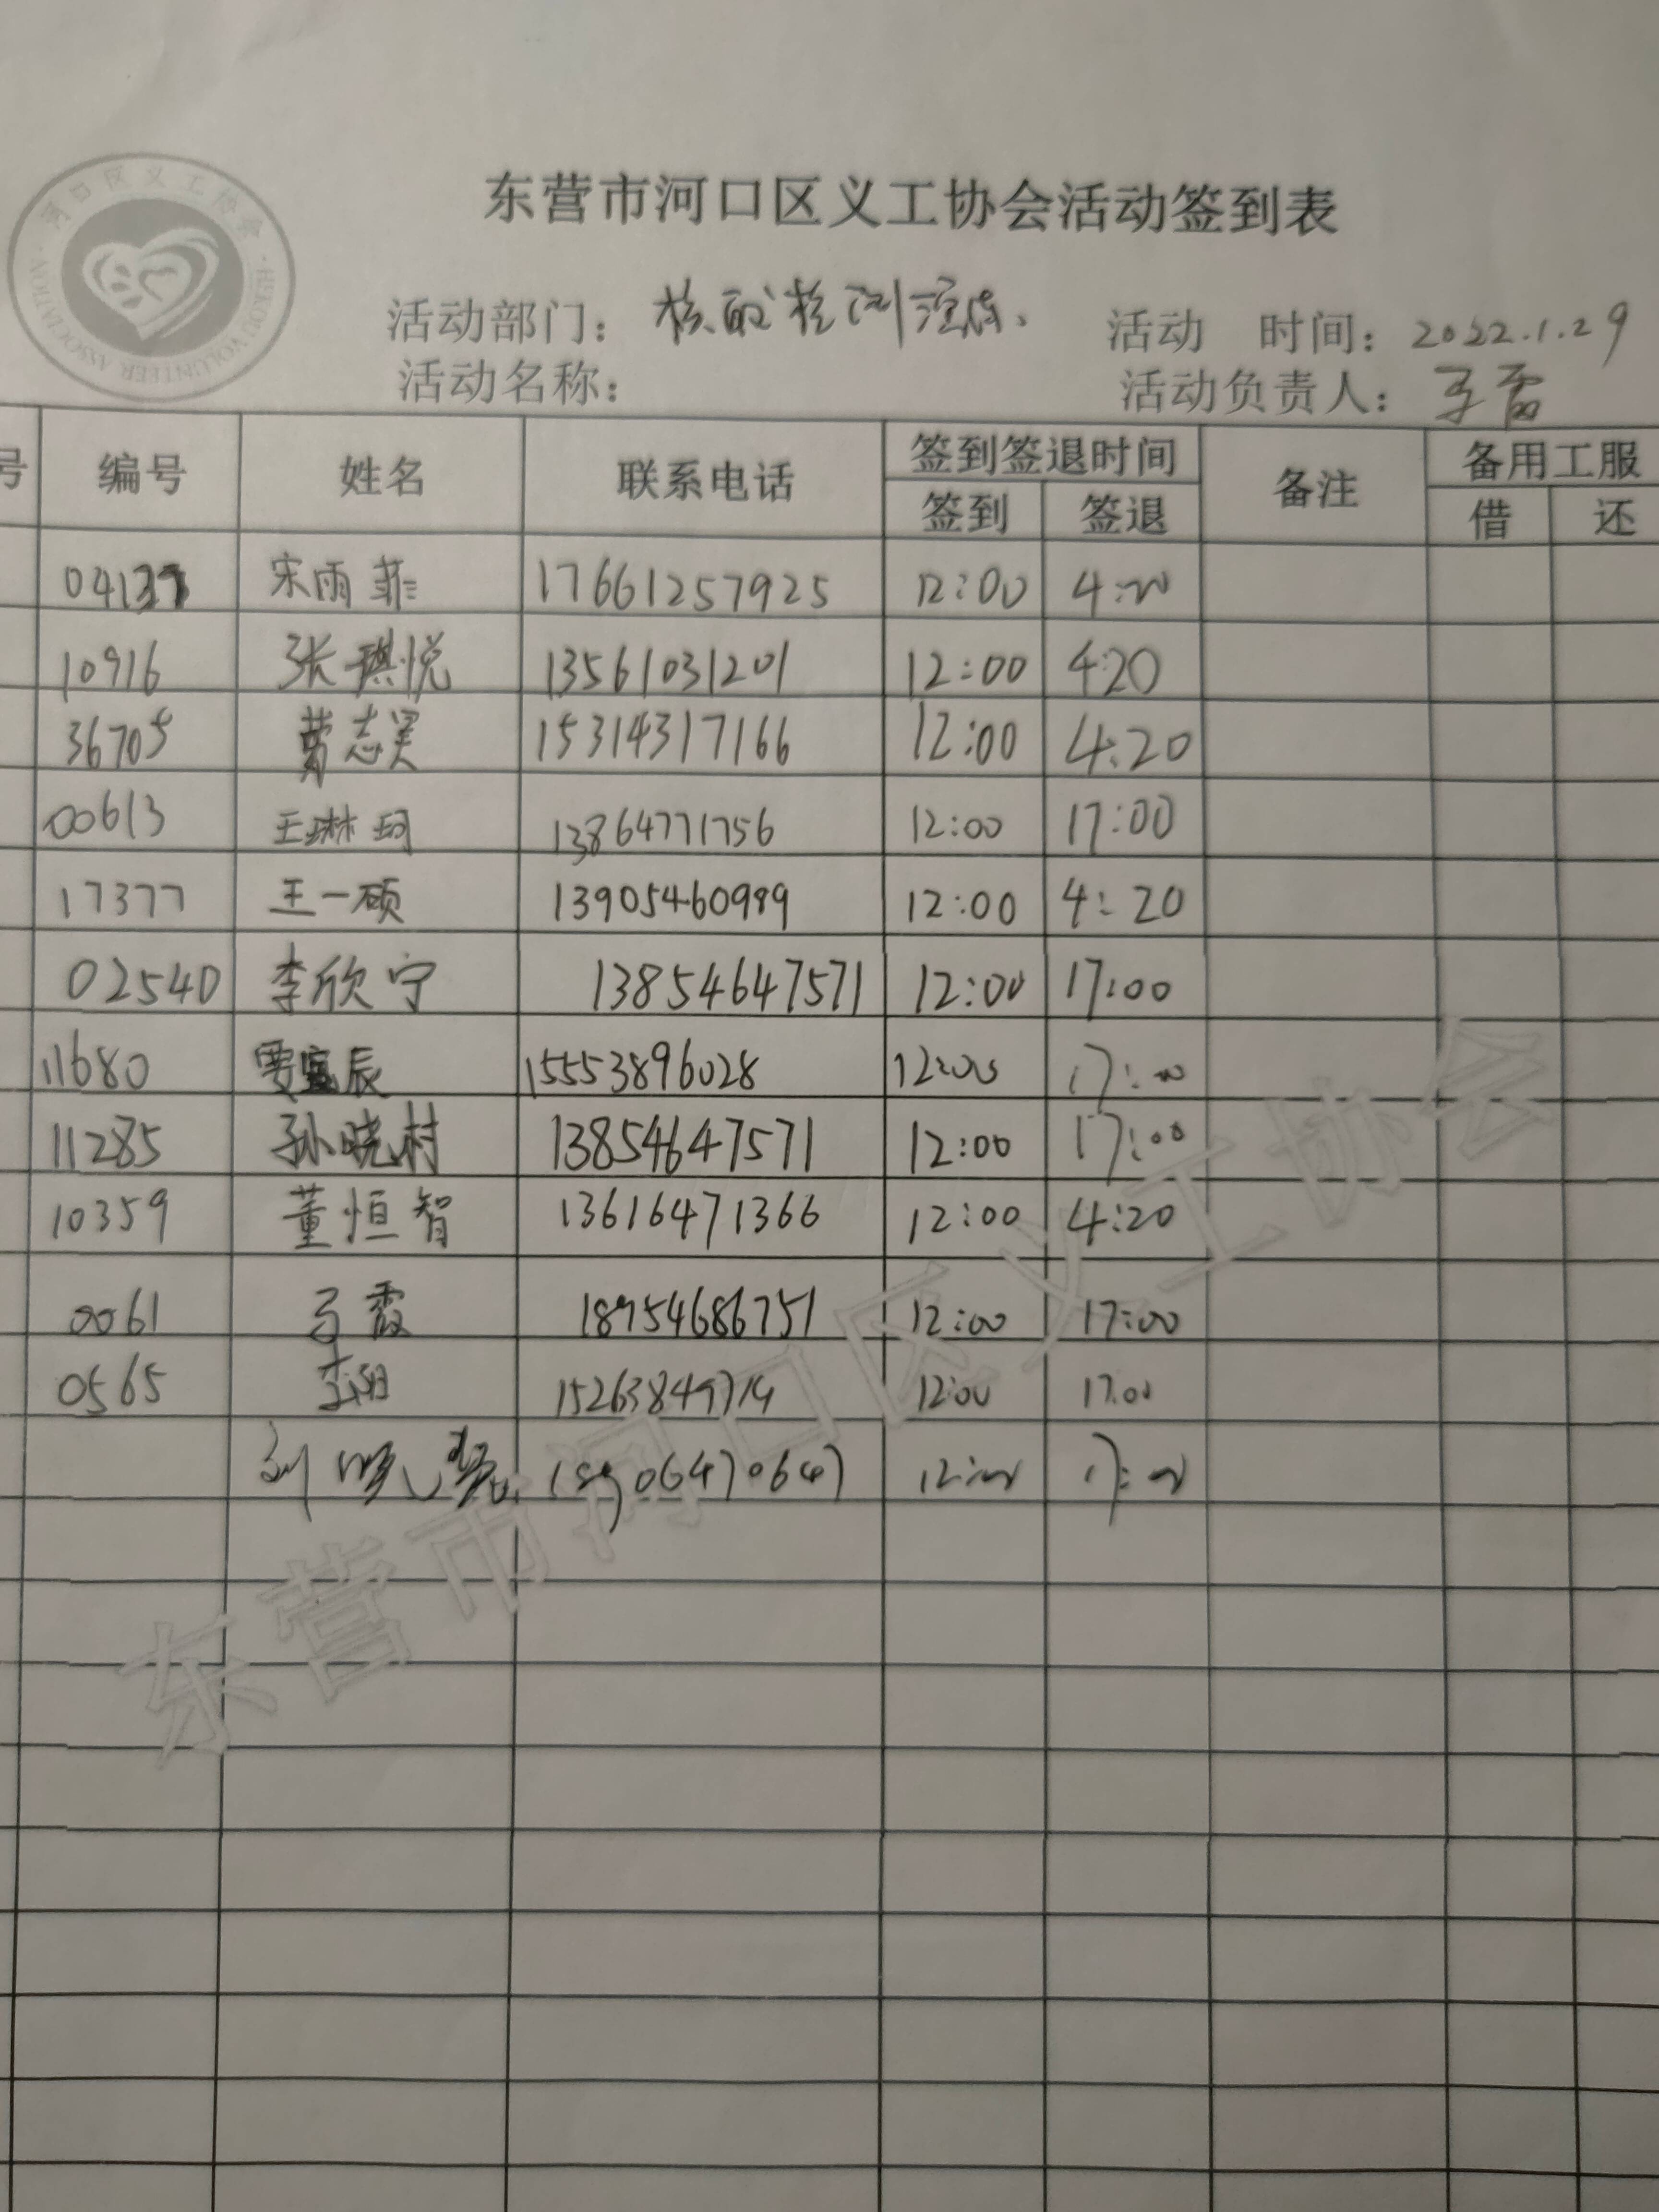 河口区义工协会
HEKOU VOLUNTEER ASSOCIATION
东营市河口区义工协会活动签到表
活动部门：核酸检测演练 活动 时间：2022.1.29
活动名称： 活动负责人：
号 编号 姓名 联系电话 签到签退时间 备注 备用工服
签到 签退 借 还
宋雨菲 17661257925 12:00 4:20
10916 张琪悦 13561031201 12:00 4:20
36705 志昊 15314317166 12:00 4:20
00613 王琳珂 13864771756 12:00 17:00
17377 王一硕 13905460989 12:00 4:20
02540 李欣宁 13854647571 12:00 17:00
11680 辰 15553896028 12:00 17:00
11285 孙晓村 13854647571 12:00 17:00
10359 董恒智 13616471366 12:00 4:20
0061 霞 18954686751 12:00 17:00
0565 12:00 17:00
刘晓 12:00 17:00
东营市河口区义工协会